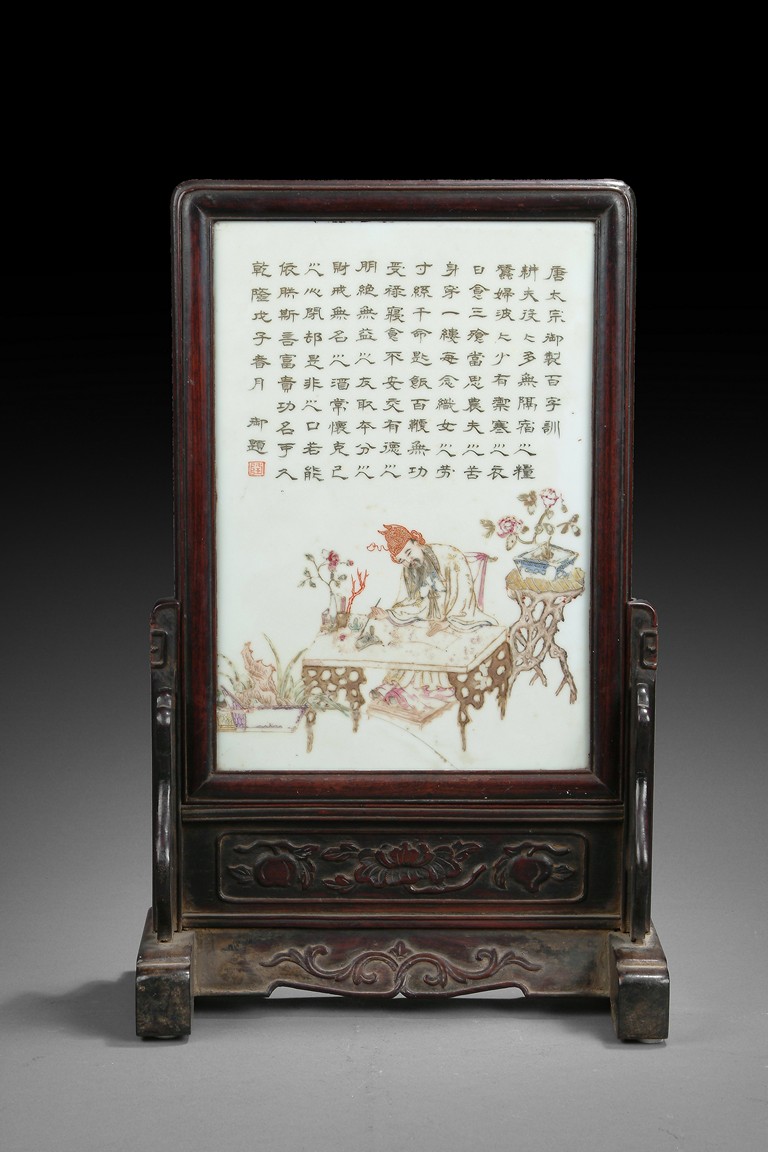 唐太宗御製百字訓
耕夫役〻多無隔宿之糧
蠶婦波〻少有禦寒之衣
日食三飡當思農夫之苦
身穿一縷每念織女之勞
寸絲千命匙飯百鞭無功
受祿寢食不安交有德之
朋絶無益之友取本分之
財戒無名之酒常懷克己
之心閉却是非之口若能
依朕斯言富貴功名可久
乾隆戊子春月 御題